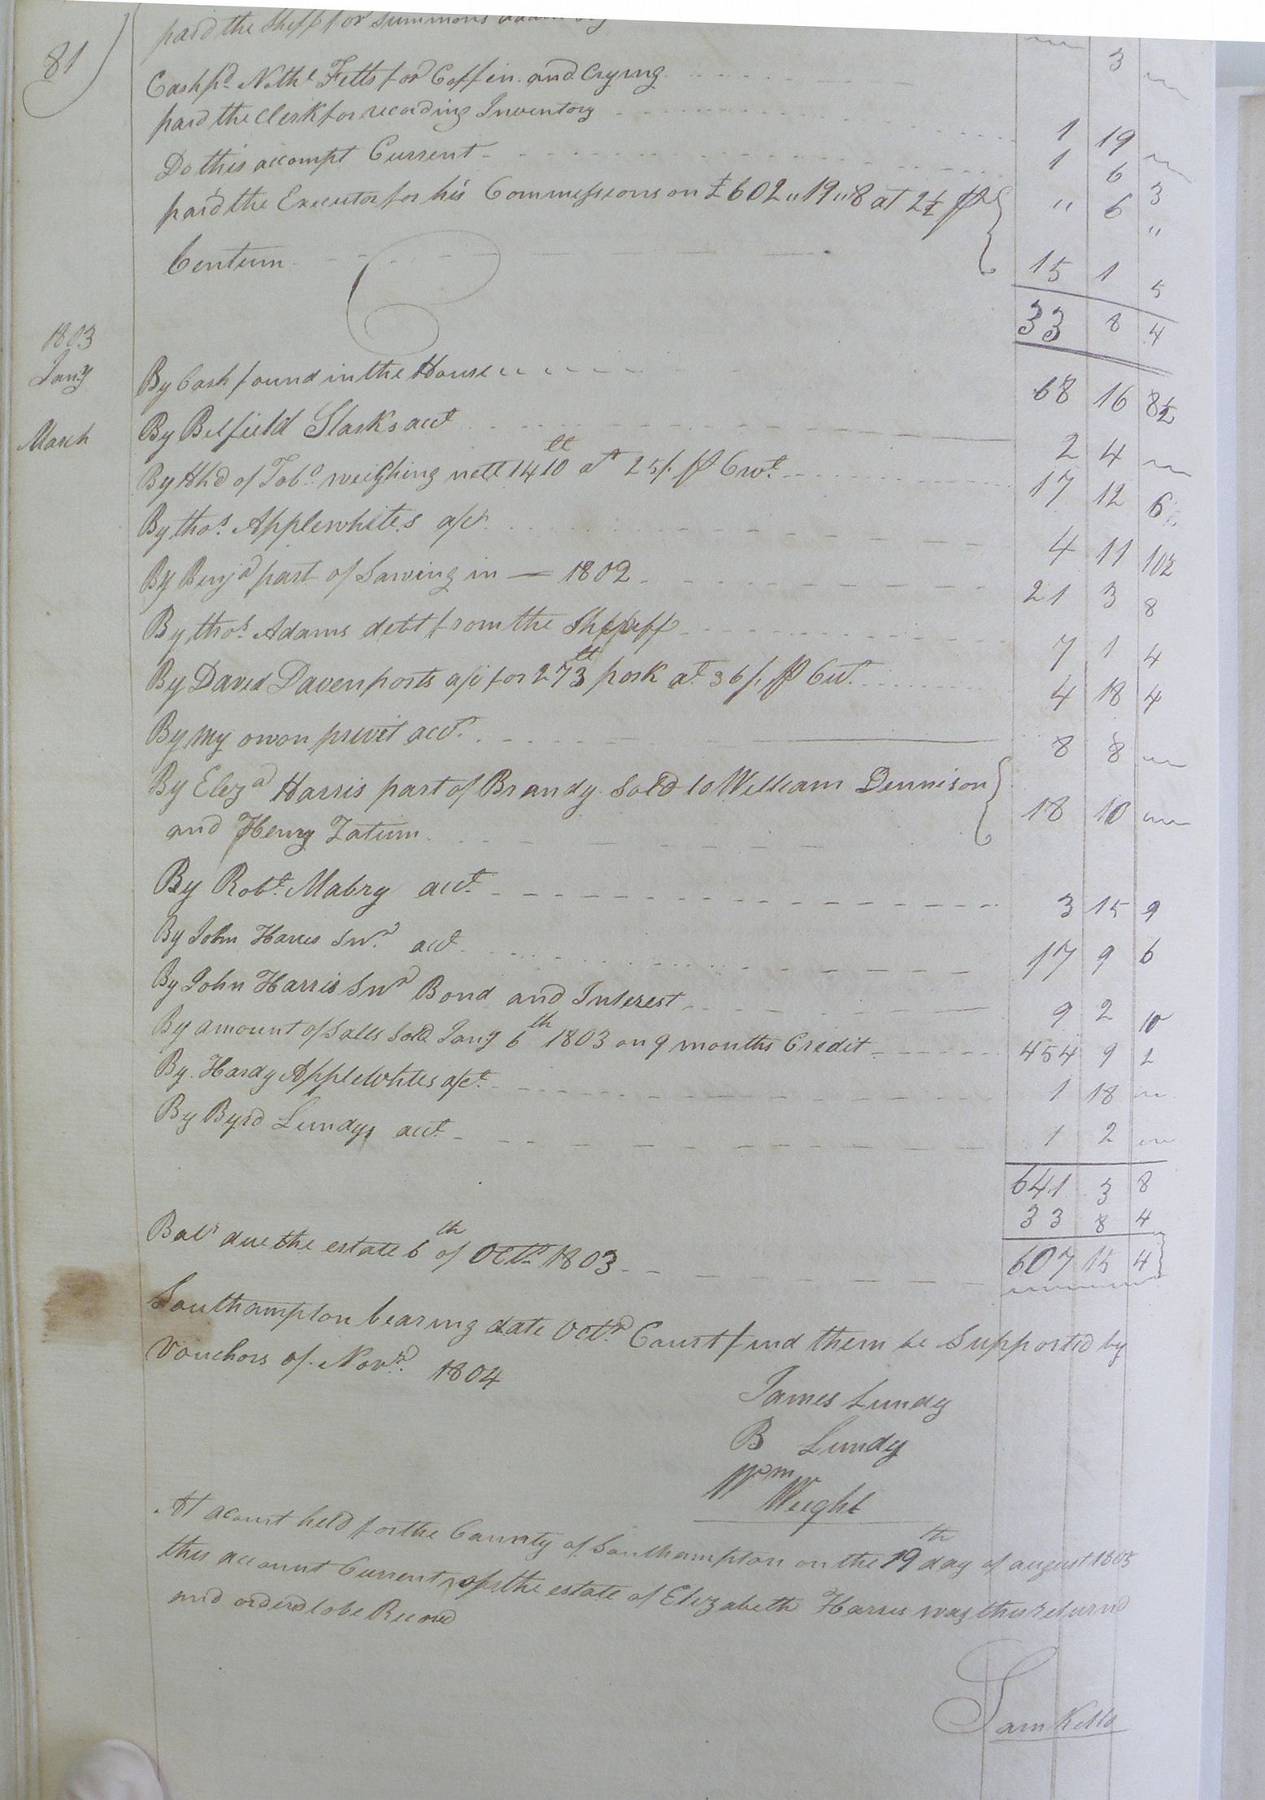 81
paid the Sheff for Summons
3
Cash pd. Nathl. Fetts for Coffin and Crying 1 19
paid the Clerk for recording Inventory 1 6 3
Do this accompt Current " 6 "
paid the Executor for his Commissions on £602"19"8 at 2½ pr
Centum 15 1 5
33 8 4
1803
Jany By Cash found in the House 68 16 8½
March By Belfield Starks acct 2 4
By Hhd of Tobo. weighing nett 1410 lt at 25/. pr Cwt. 17 12 6
By thos. Applewhites a/ct. 4 11 10½
By Benja part of Sawing in — 1802 21 3 8
By thos. Adams debt from the Sheriff 7 1 4
By David Davenports a/c for 273 lt pork at 36/. pr Cwt. 4 18 4
By my own privit acct. 8 8
By Eliza Harris part of Brandy Sold to William Dennison
and Henry Tatum 18 10
By Robt. Mabry acct. 3 15 9
By John Harris Snr. acct. 17 9 6
By John Harris Snr Bond and Interest 9 2 10
By amount of Sales Sold Jany 6th 1803 on 9 months Credit 454 9 2
By Hardy Applewhites a/ct. 1 18
By Byrd Lundys acct. 1 2
641 3 8
33 8 4
Bale due the estate 6th of Octr. 1803 607 15 4
Southampton bearing date Octr. Court find them be Supported by
Vouchers of Novr. 1804
James Lundy
B Lundy
Wm Wright
At a court held for the County of Southampton on the 19th day of august 1805
this account Current of the estate of Elizabeth Harris was this returnd
and orderd to be Record
Sam Kello